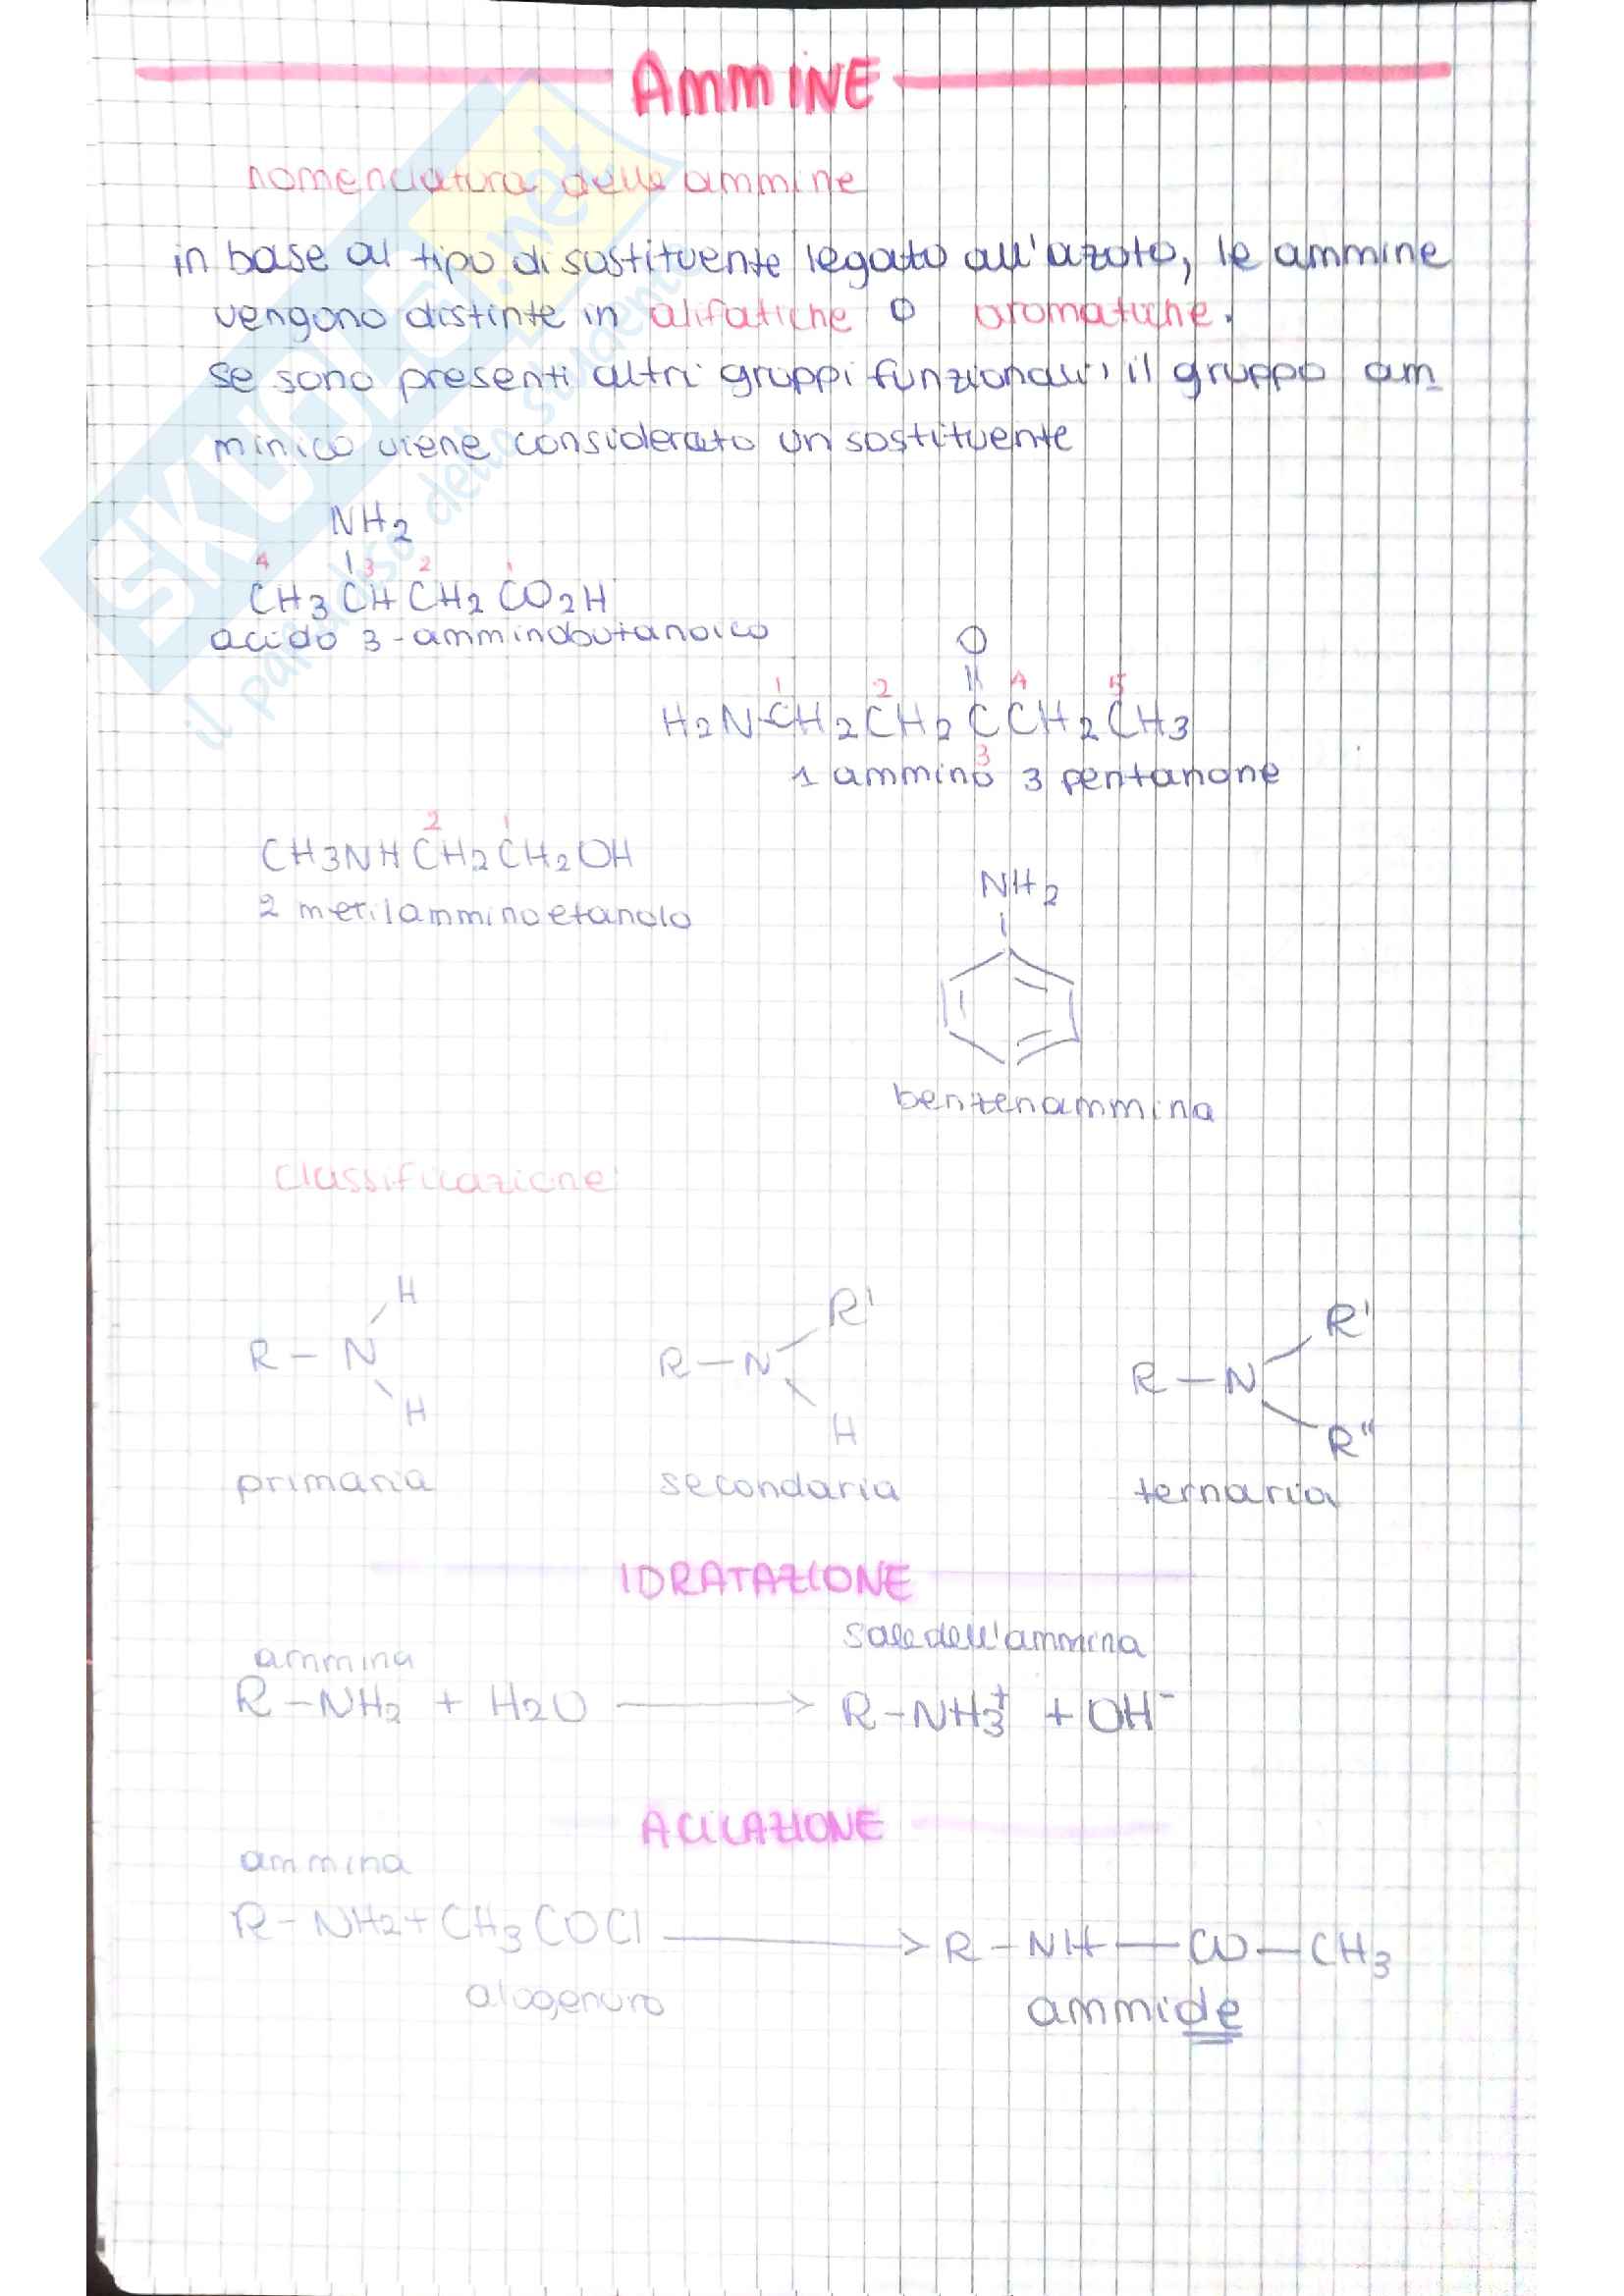 AMMINE
nomenclatura delle ammine
in base al tipo di sostituente legato all'azoto, le ammine
vengono distinte in alifatiche o aromatiche.
se sono presenti altri gruppi funzionali, il gruppo am
minico viene considerato un sostituente
NH2
4 3 2 1
CH3 CH CH2 CO2H
acido 3-amminobutanoico
O
1 2 4 5
H2N-CH2CH2 C CH2CH3
3
1 ammino 3 pentanone
2 1
CH3NHCH2CH2OH
2 metilamminoetanolo
NH2
benzenammina
classificazione
H
R - N
H
primaria
R'
R - N
H
secondaria
R'
R - N
R"
ternaria
IDRATAZIONE
ammina sale dell'ammina
R-NH2 + H2O → R-NH3+ + OH-
ACILAZIONE
ammina
R-NH2 + CH3COCl → R-NH-CO-CH3
alogenuro ammide
SKUOLA.net
il paradiso dello studente